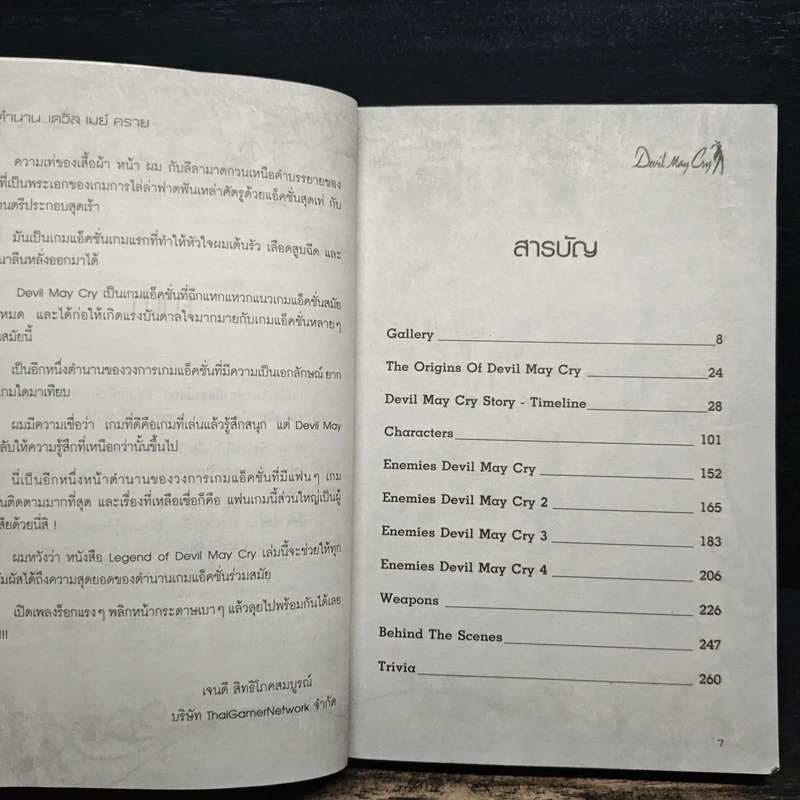 ตำนาน...เดวิล เมย์ คราย
ความเท่ของเสื้อผ้า หน้า ผม กับลีลามาดกวนเหนือคำบรรยายของ
ที่เป็นพระเอกของเกมการไล่ล่าฟาดฟันเหล่าศัตรูด้วยแอ็คชั่นสุดเท่ กับ
นตรีประกอบสุดเร้า
มันเป็นเกมแอ็คชั่นเกมแรกที่ทำให้หัวใจผมเต้นรัว เลือดสูบฉีด และ
นาลีนหลั่งออกมาได้
Devil May Cry เป็นเกมแอ็คชั่นที่ฉีกแหกแหวกแนวเกมแอ็คชั่นสมัย
หมด และได้ก่อให้เกิดแรงบันดาลใจมากมายกับเกมแอ็คชั่นหลายๆ
สมัยนี้
เป็นอีกหนึ่งตำนานของวงการเกมแอ็คชั่นที่มีความเป็นเอกลักษณ์ ยาก
เกมใดมาเทียบ
ผมมีความเชื่อว่า เกมที่ดีคือเกมที่เล่นแล้วรู้สึกสนุก แต่ Devil May
ลับให้ความรู้สึกที่เหนือกว่านั้นขึ้นไป
นี่เป็นอีกหนึ่งหน้าตำนานของวงการเกมแอ็คชั่นที่มีแฟนๆ เกม
นติดตามมากที่สุด และเรื่องที่เหลือเชื่อก็คือ แฟนเกมนี้ส่วนใหญ่เป็นผู้
สียด้วยนี่สิ !
ผมหวังว่า หนังสือ Legend of Devil May Cry เล่มนี้จะช่วยให้ทุก
ัมผัสได้ถึงความสุดยอดของตำนานเกมแอ็คชั่นร่วมสมัย
เปิดเพลงร็อกแรงๆ พลิกหน้ากระดาษเบาๆ แล้วลุยไปพร้อมกันได้เลย
!!!
เจนดี สิทธิโภคสมบูรณ์
บริษัท ThaiGamerNetwork จำกัด
Devil May Cry
สารบัญ
Gallery 8
The Origins Of Devil May Cry 24
Devil May Cry Story - Timeline 28
Characters 101
Enemies Devil May Cry 152
Enemies Devil May Cry 2 165
Enemies Devil May Cry 3 183
Enemies Devil May Cry 4 206
Weapons 226
Behind The Scenes 247
Trivia 260
7